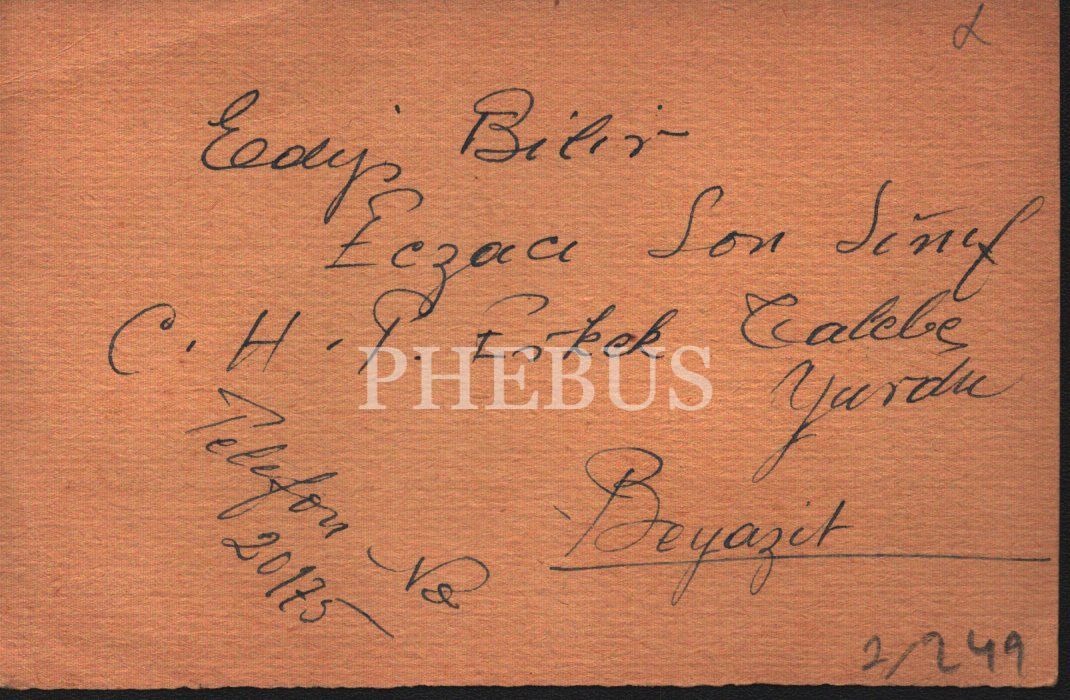 Edip Bilir
Eczacı Son Sınıf
C. H. P. Erkek Talebe
Yurdu
PHEBUS
Beyazit
Telefon No
20175
2/249